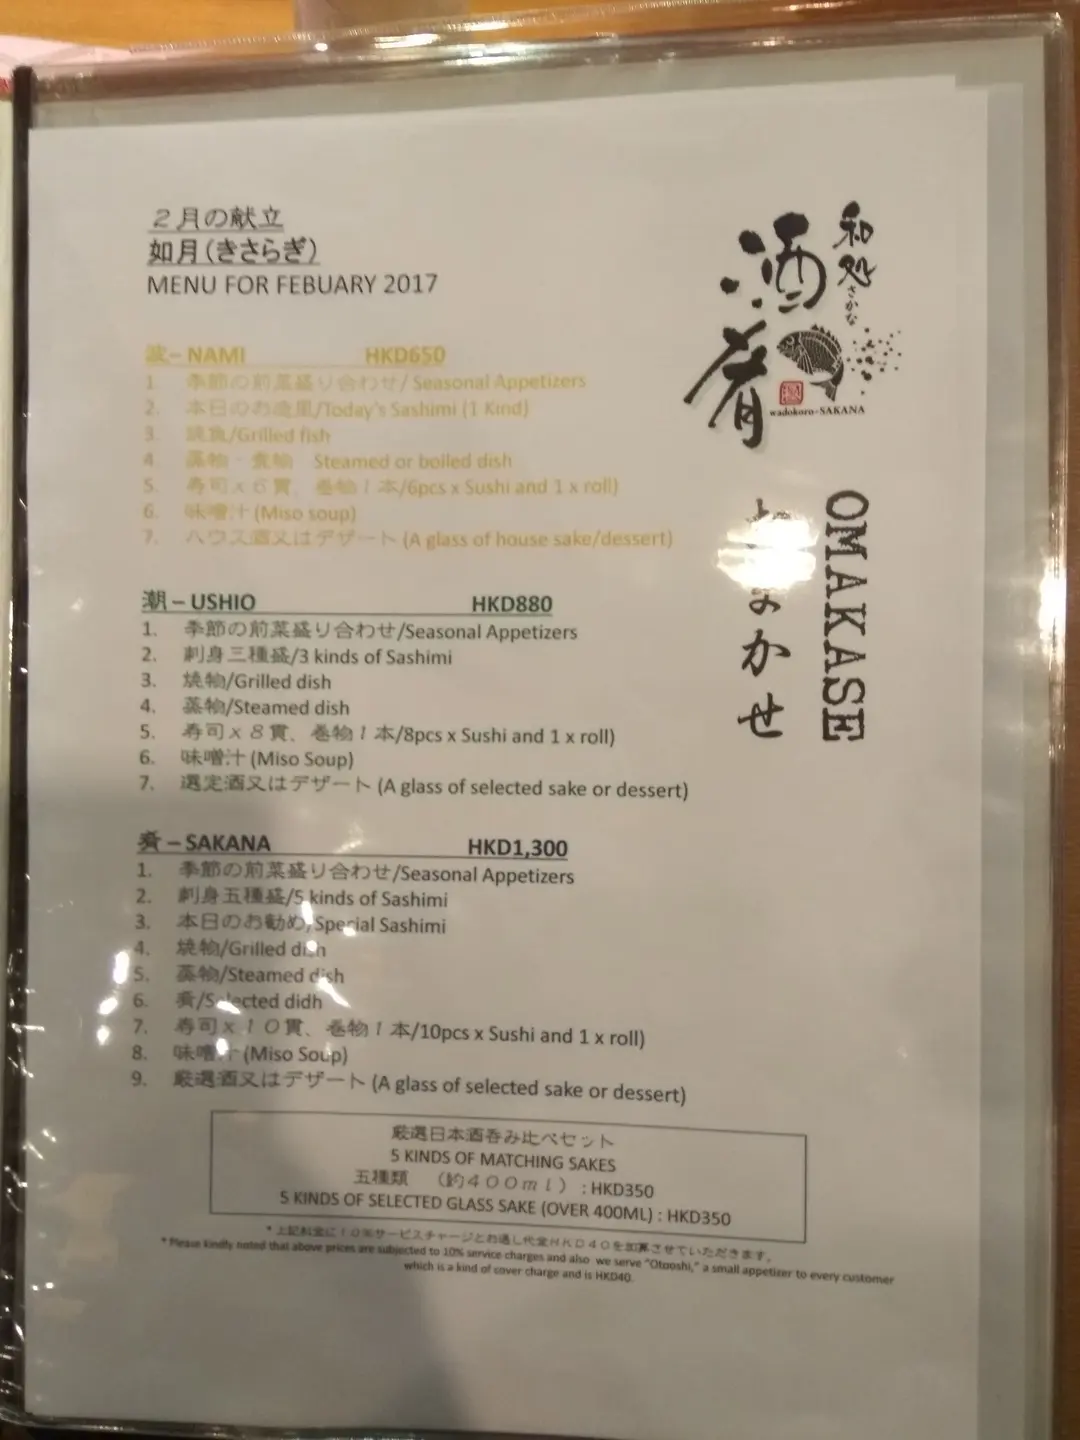 2月の献立
如月(きさらぎ)
MENU FOR FEBUARY 2017
和処
さかな
酒肴
wadokoro-SAKANA
OMAKASE
まかせ
波– NAMI HKD650
1. 季節の前菜盛り合わせ/ Seasonal Appetizers
2. 本日のお造里/Today's Sashimi (1 Kind)
3. 焼魚/Grilled fish
4. 蒸物・煮物 Steamed or boiled dish
5. 寿司x6貫、巻物1本/6pcs x Sushi and 1 x roll)
6. 味噌汁 (Miso soup)
7. ハウス酒又はデザート (A glass of house sake/dessert)
潮 – USHIO HKD880
1. 季節の前菜盛り合わせ/Seasonal Appetizers
2. 刺身三種盛/3 kinds of Sashimi
3. 焼物/Grilled dish
4. 蒸物/Steamed dish
5. 寿司x8貫、巻物1本/8pcs x Sushi and 1 x roll)
6. 味噌汁 (Miso Soup)
7. 選定酒又はデザート (A glass of selected sake or dessert)
肴 – SAKANA HKD1,300
1. 季節の前菜盛り合わせ/Seasonal Appetizers
2. 刺身五種盛/5 kinds of Sashimi
3. 本日のお勧め/Special Sashimi
4. 焼物/Grilled dish
5. 蒸物/Steamed dish
6. 肴/Selected didh
7. 寿司x10貫、巻物1本/10pcs x Sushi and 1 x roll)
8. 味噌汁 (Miso Soup)
9. 厳選酒又はデザート (A glass of selected sake or dessert)
厳選日本酒呑み比べセット
5 KINDS OF MATCHING SAKES
五種類 (約400ml) : HKD350
5 KINDS OF SELECTED GLASS SAKE (OVER 400ML) : HKD350
* 上記料金に10%サービスチャージとお通し代金HKD40を加算させていただきます。
* Please kindly noted that above prices are subjected to 10% service charges and also we serve "Otooshi," a small appetizer to every customer
which is a kind of cover charge and is HKD40.